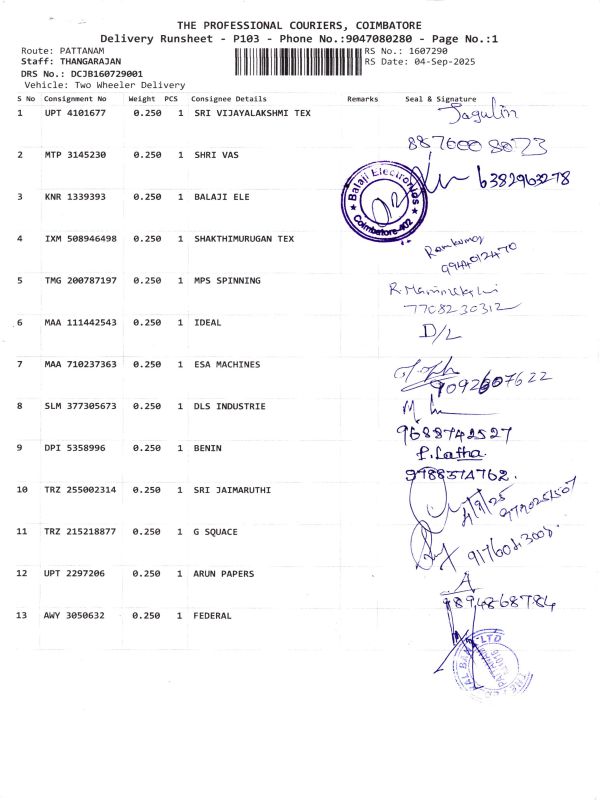 THE PROFESSIONAL COURIERS, COIMBATORE
Delivery Runsheet - P103 - Phone No.:9047080280 - Page No.:1
Route: PATTANAM
RS No.: 1607290
Staff: THANGARAJAN
RS Date: 04-Sep-2025
DRS No.: DCJB160729001
Vehicle: Two Wheeler Delivery
S No Consignment No Weight PCS Consignee Details Remarks Seal & Signature
1 UPT 4101677 0.250 1 SRI VIJAYALAKSHMI TEX Jagulin
8876008073
2 MTP 3145230 0.250 1 SHRI VAS
6382963278
3 KNR 1339393 0.250 1 BALAJI ELE
Balaji Electronics
Coimbatore-402
4 IXM 508946498 0.250 1 SHAKTHIMURUGAN TEX
9944012470
5 TMG 200787197 0.250 1 MPS SPINNING
7708230312
6 MAA 111442543 0.250 1 IDEAL D/L
7 MAA 710237363 0.250 1 ESA MACHINES
9092607622
8 SLM 377305673 0.250 1 DLS INDUSTRIE
9688742527
9 DPI 5358996 0.250 1 BENIN P. Latha
9788574762.
10 TRZ 255002314 0.250 1 SRI JAIMARUTHI
4/9/25
11 TRZ 215218877 0.250 1 G SQUACE
12 UPT 2297206 0.250 1 ARUN PAPERS
9894868784
13 AWY 3050632 0.250 1 FEDERAL